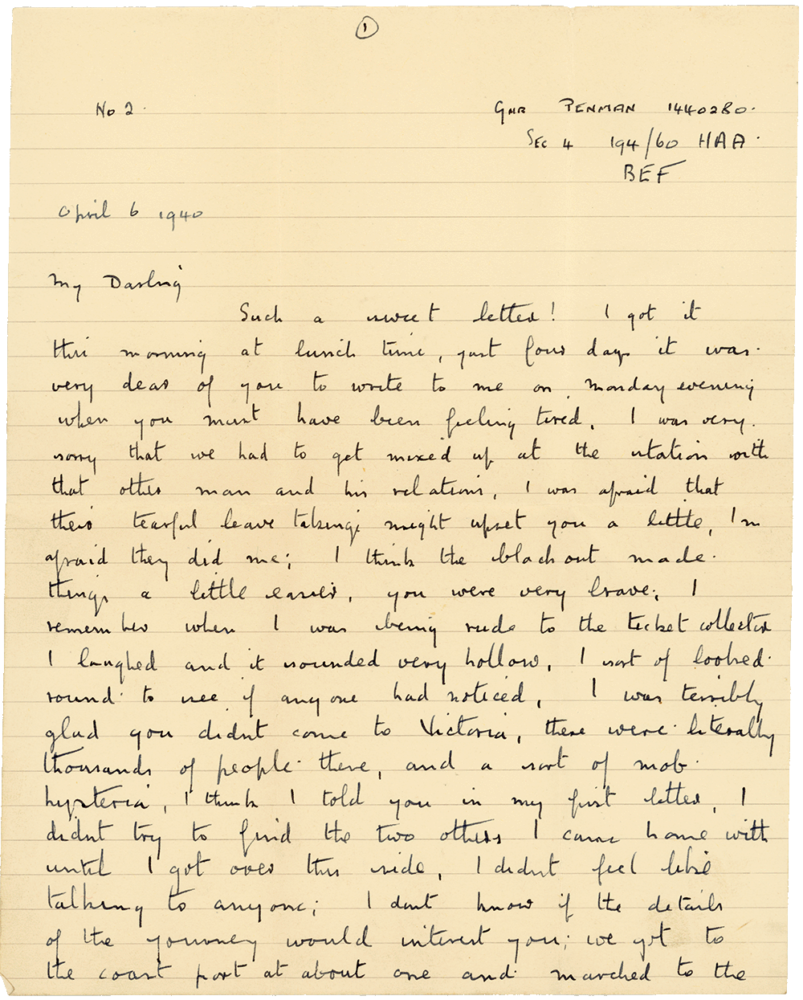 1
No 2.
GNR PENMAN 1440280.
SEC 4 194/60 HAA.
BEF
April 6 1940
My Darling
Such a sweet letter! I got it
this morning at lunch time, just four days it was.
very dear of you to write to me on Monday evening
when you must have been feeling tired, I was very.
sorry that we had to get mixed up at the station with
that other man and his relations, I was afraid that
their tearful leave takings might upset you a little, I'm
afraid they did me; I think the blackout made.
things a little easier, you were very brave; I
remember when I was being rude to the ticket collector
I laughed and it sounded very hollow, I sort of looked.
round to see if anyone had noticed, I was terribly
glad you didnt come to Victoria, there were literally
thousands of people there, and a sort of mob.
hysteria, I think I told you in my first letter, I
didnt try to find the two others I came home with
until I got over this side, I didnt feel like
talking to anyone; I dont know if the details
of the journey would interest you; we got to
the coast port at about one and marched to the